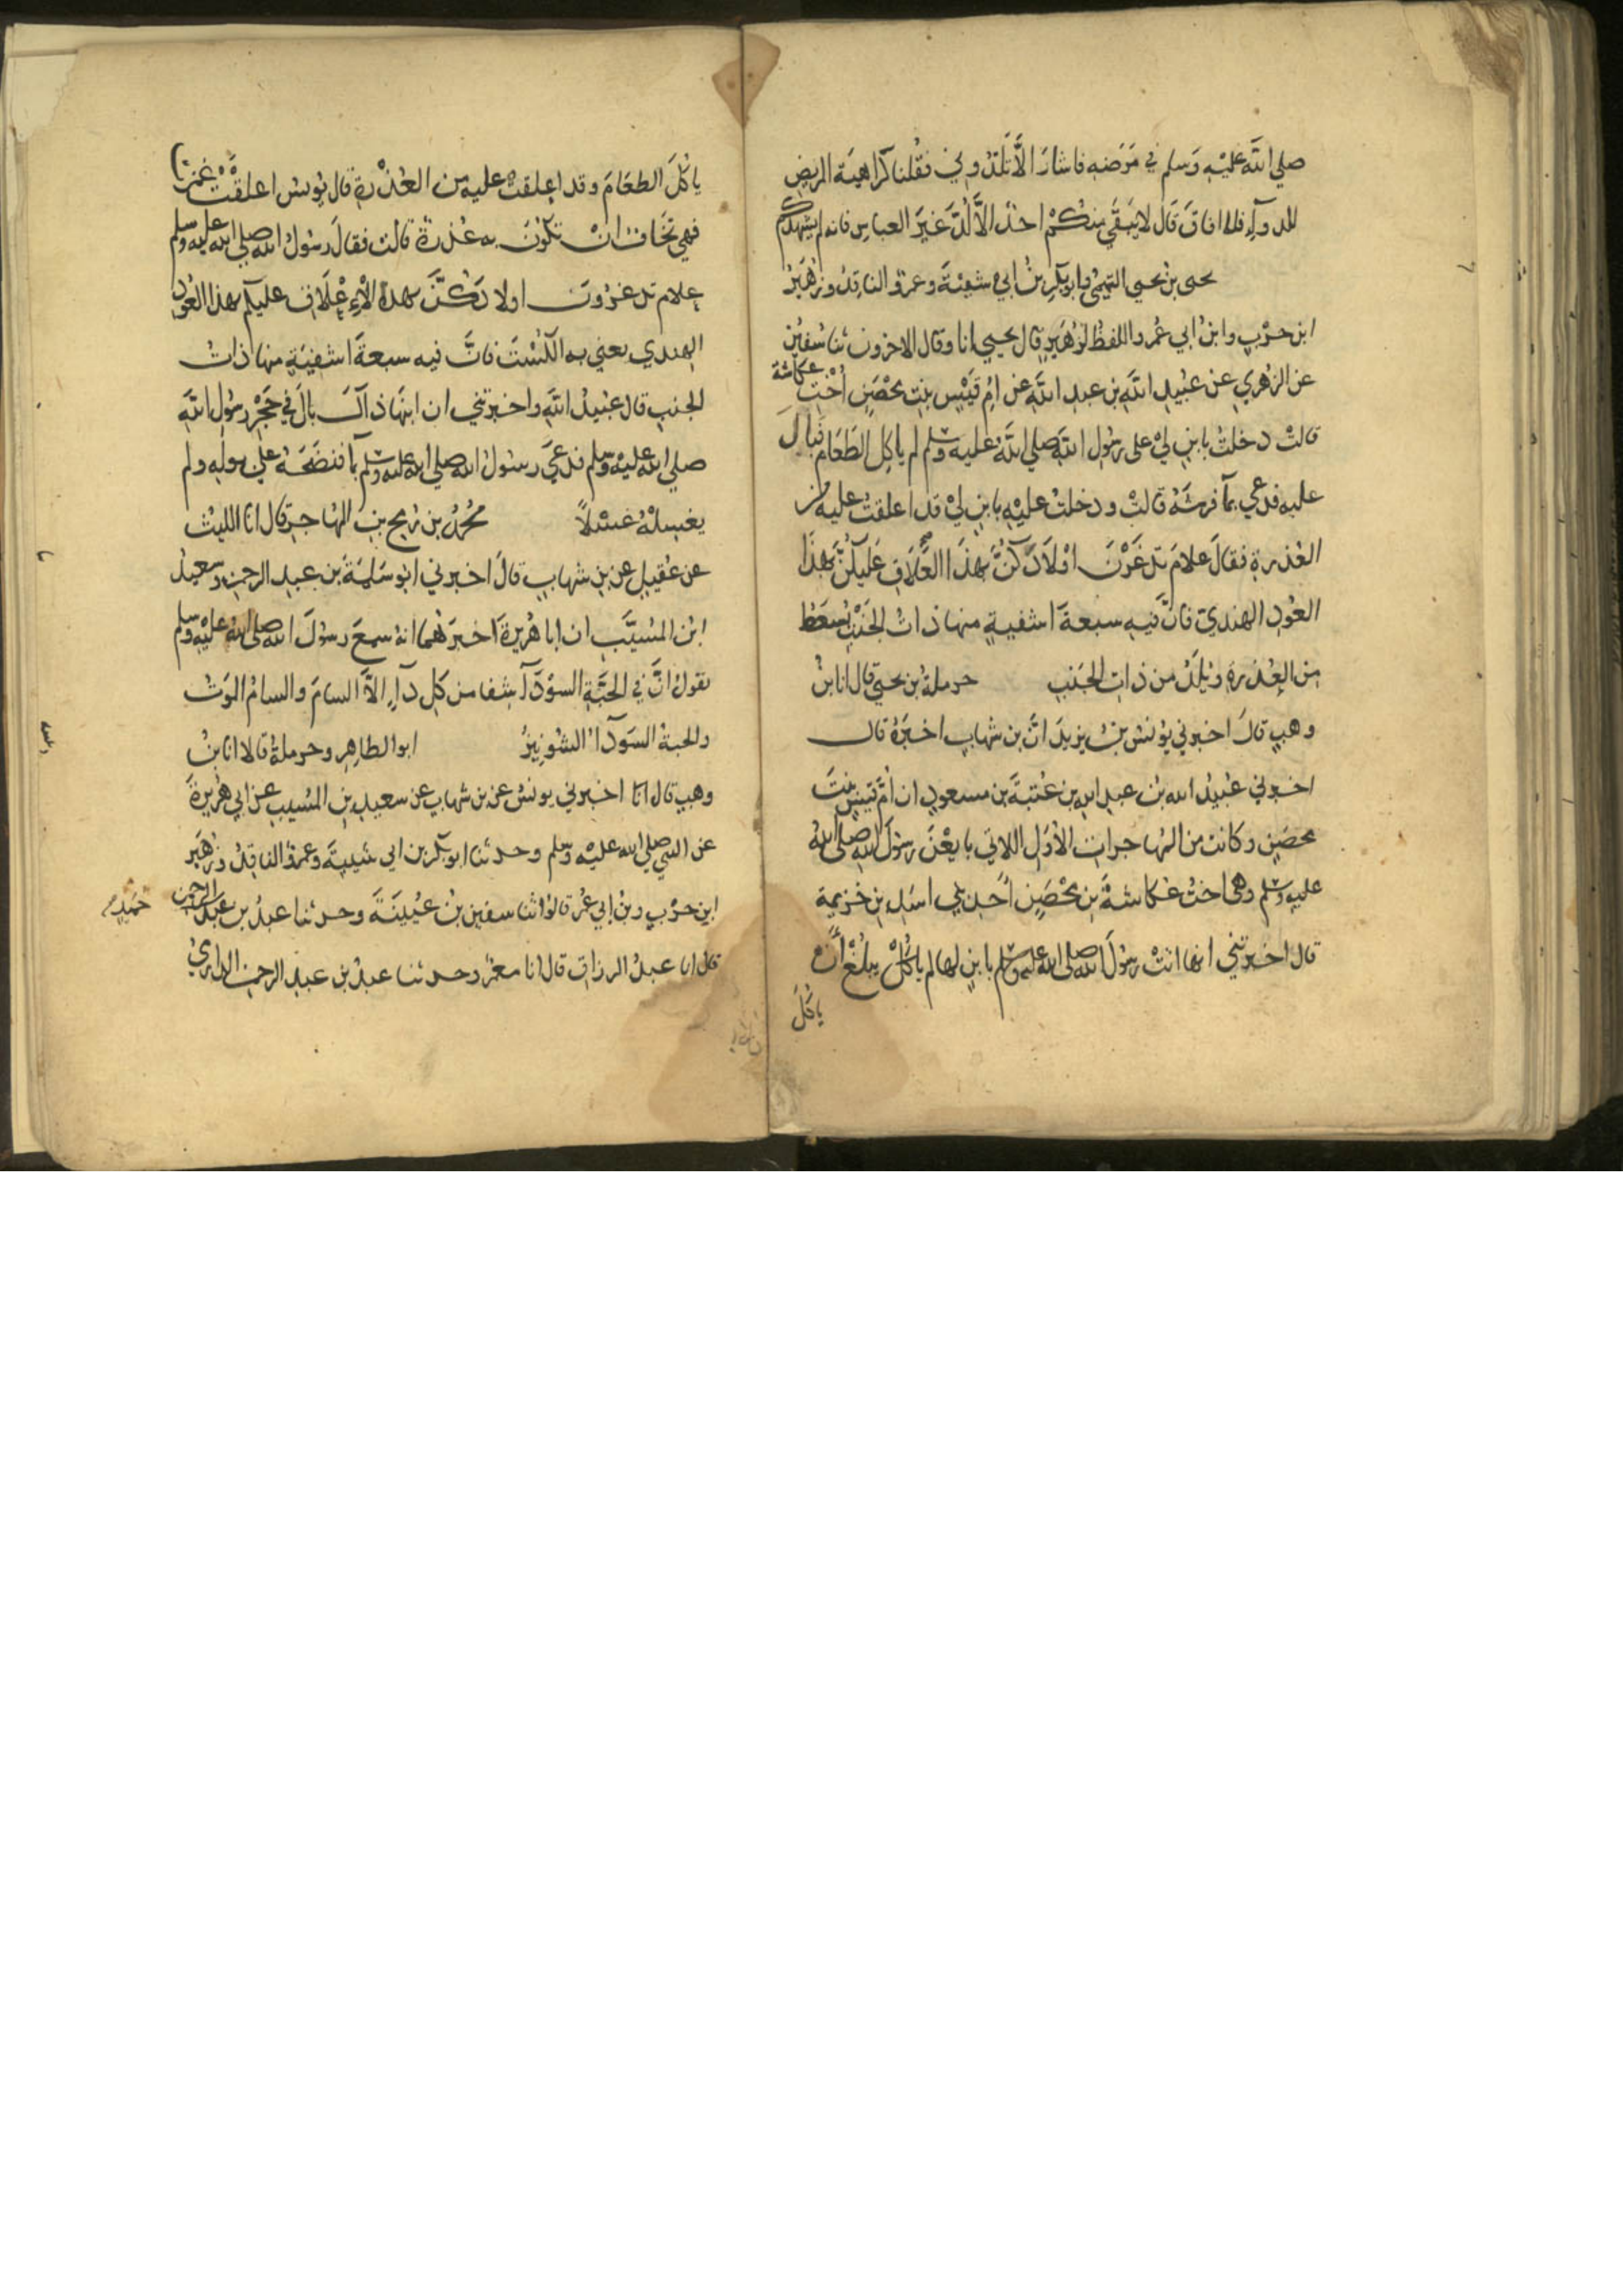 صلي الله عليه وسلم في مرضه فاشار الا تلدوني فقلنا كراهية المريض
للدوآء فلما افاق قال لا يبقي منكم احد الا لُدّ غير العباس فانه لم يشهدكم
يحيى بن يحيى التميمي وابو بكر بن ابي شيبة وعمرو الناقد وزهير
ابن حرب وابن ابي عمر واللفظ لزهير قال يحيي انا وقال الاخرون ثنا سفين
عن الزهري عن عبيد الله بن عبد الله عن ام قيس بنت محصن اخت عكاشة
قالت دخلت بابن لي على رسول الله صلي الله عليه وسلم لم ياكل الطعام فبال
عليه فدعي بمآ فرشه قالت ودخلت عليه بابن لي قد اعلقت عليه من
العذرة فقال علام تدغرن اولادكن بهذا العلاق عليكن بهذا
العود الهندي فان فيه سبعة اشفية منها ذات الجنب يسعط
من العذرة ويلد من ذات الجنب حرملة بن يحيي قال انا بن
وهب قال اخبرني يونس بن يزيد ان بن شهاب اخبره قال
اخبرني عبيد الله بن عبد الله بن عتبة بن مسعود ان ام قيس بنت
محصن وكانت من المهاجرات الاول اللاتي بايعن رسول الله صلي الله
عليه وسلم وهي اخت عكاشة بن محصن احد بني اسد بن خزيمة
قال اخبرتني انها اتت رسول الله صلي الله عليه وسلم بابن لها لم يبلغ ان
ياكل
ياكل الطعام وقد اعلقت عليه من العذرة قال يونس اعلقت غمزت
فهي تخاف ان تكون به عذرة قالت فقال رسول الله صلي الله عليه وسلم
علام تدغرون اولادكن بهذه الاعلاق عليكم بهذا العود
الهندي يعني به الكست فان فيه سبعة اشفية منها ذات
الجنب قال عبيد الله واخبرتني ان ابنها ذاك بال في حجر رسول الله
صلي الله عليه وسلم فدعي رسول الله صلي الله عليه وسلم بمآ فنضحه علي بوله ولم
يغسله غسلاً محمد بن رمح بن المهاجر قال انا الليث
عن عقيل عن بن شهاب قال اخبرني ابو سلمة بن عبد الرحمن وسعيد
ابن المسيب ان ابا هريرة اخبرهما انه سمع رسول الله صلي الله عليه وسلم
يقول ان في الحبة السودآ شفا من كل دآء الا السام والسام الموت
والحبة السودآ الشونيز ابو الطاهر وحرملة قالا انا بن
وهب قال انا اخبرني يونس عن بن شهاب عن سعيد بن المسيب عن ابي هريرة
عن النبي صلي الله عليه وسلم وحدثنا ابو بكر بن ابي شيبة وعمرو الناقد وزهير
ابن حرب وبن ابي عمر قالوا ثنا سفين بن عيينة وحدثنا عبد بن حميد
قال انا عبد الرزاق قال انا معمر وحدثنا عبد بن عبد الرحمن الدارمي